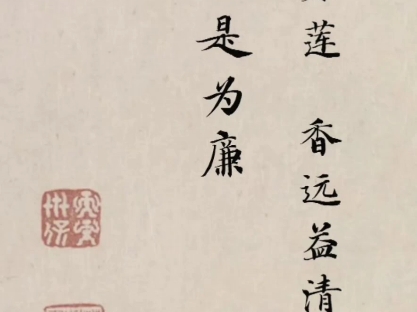 莲 香远益清
是为廉